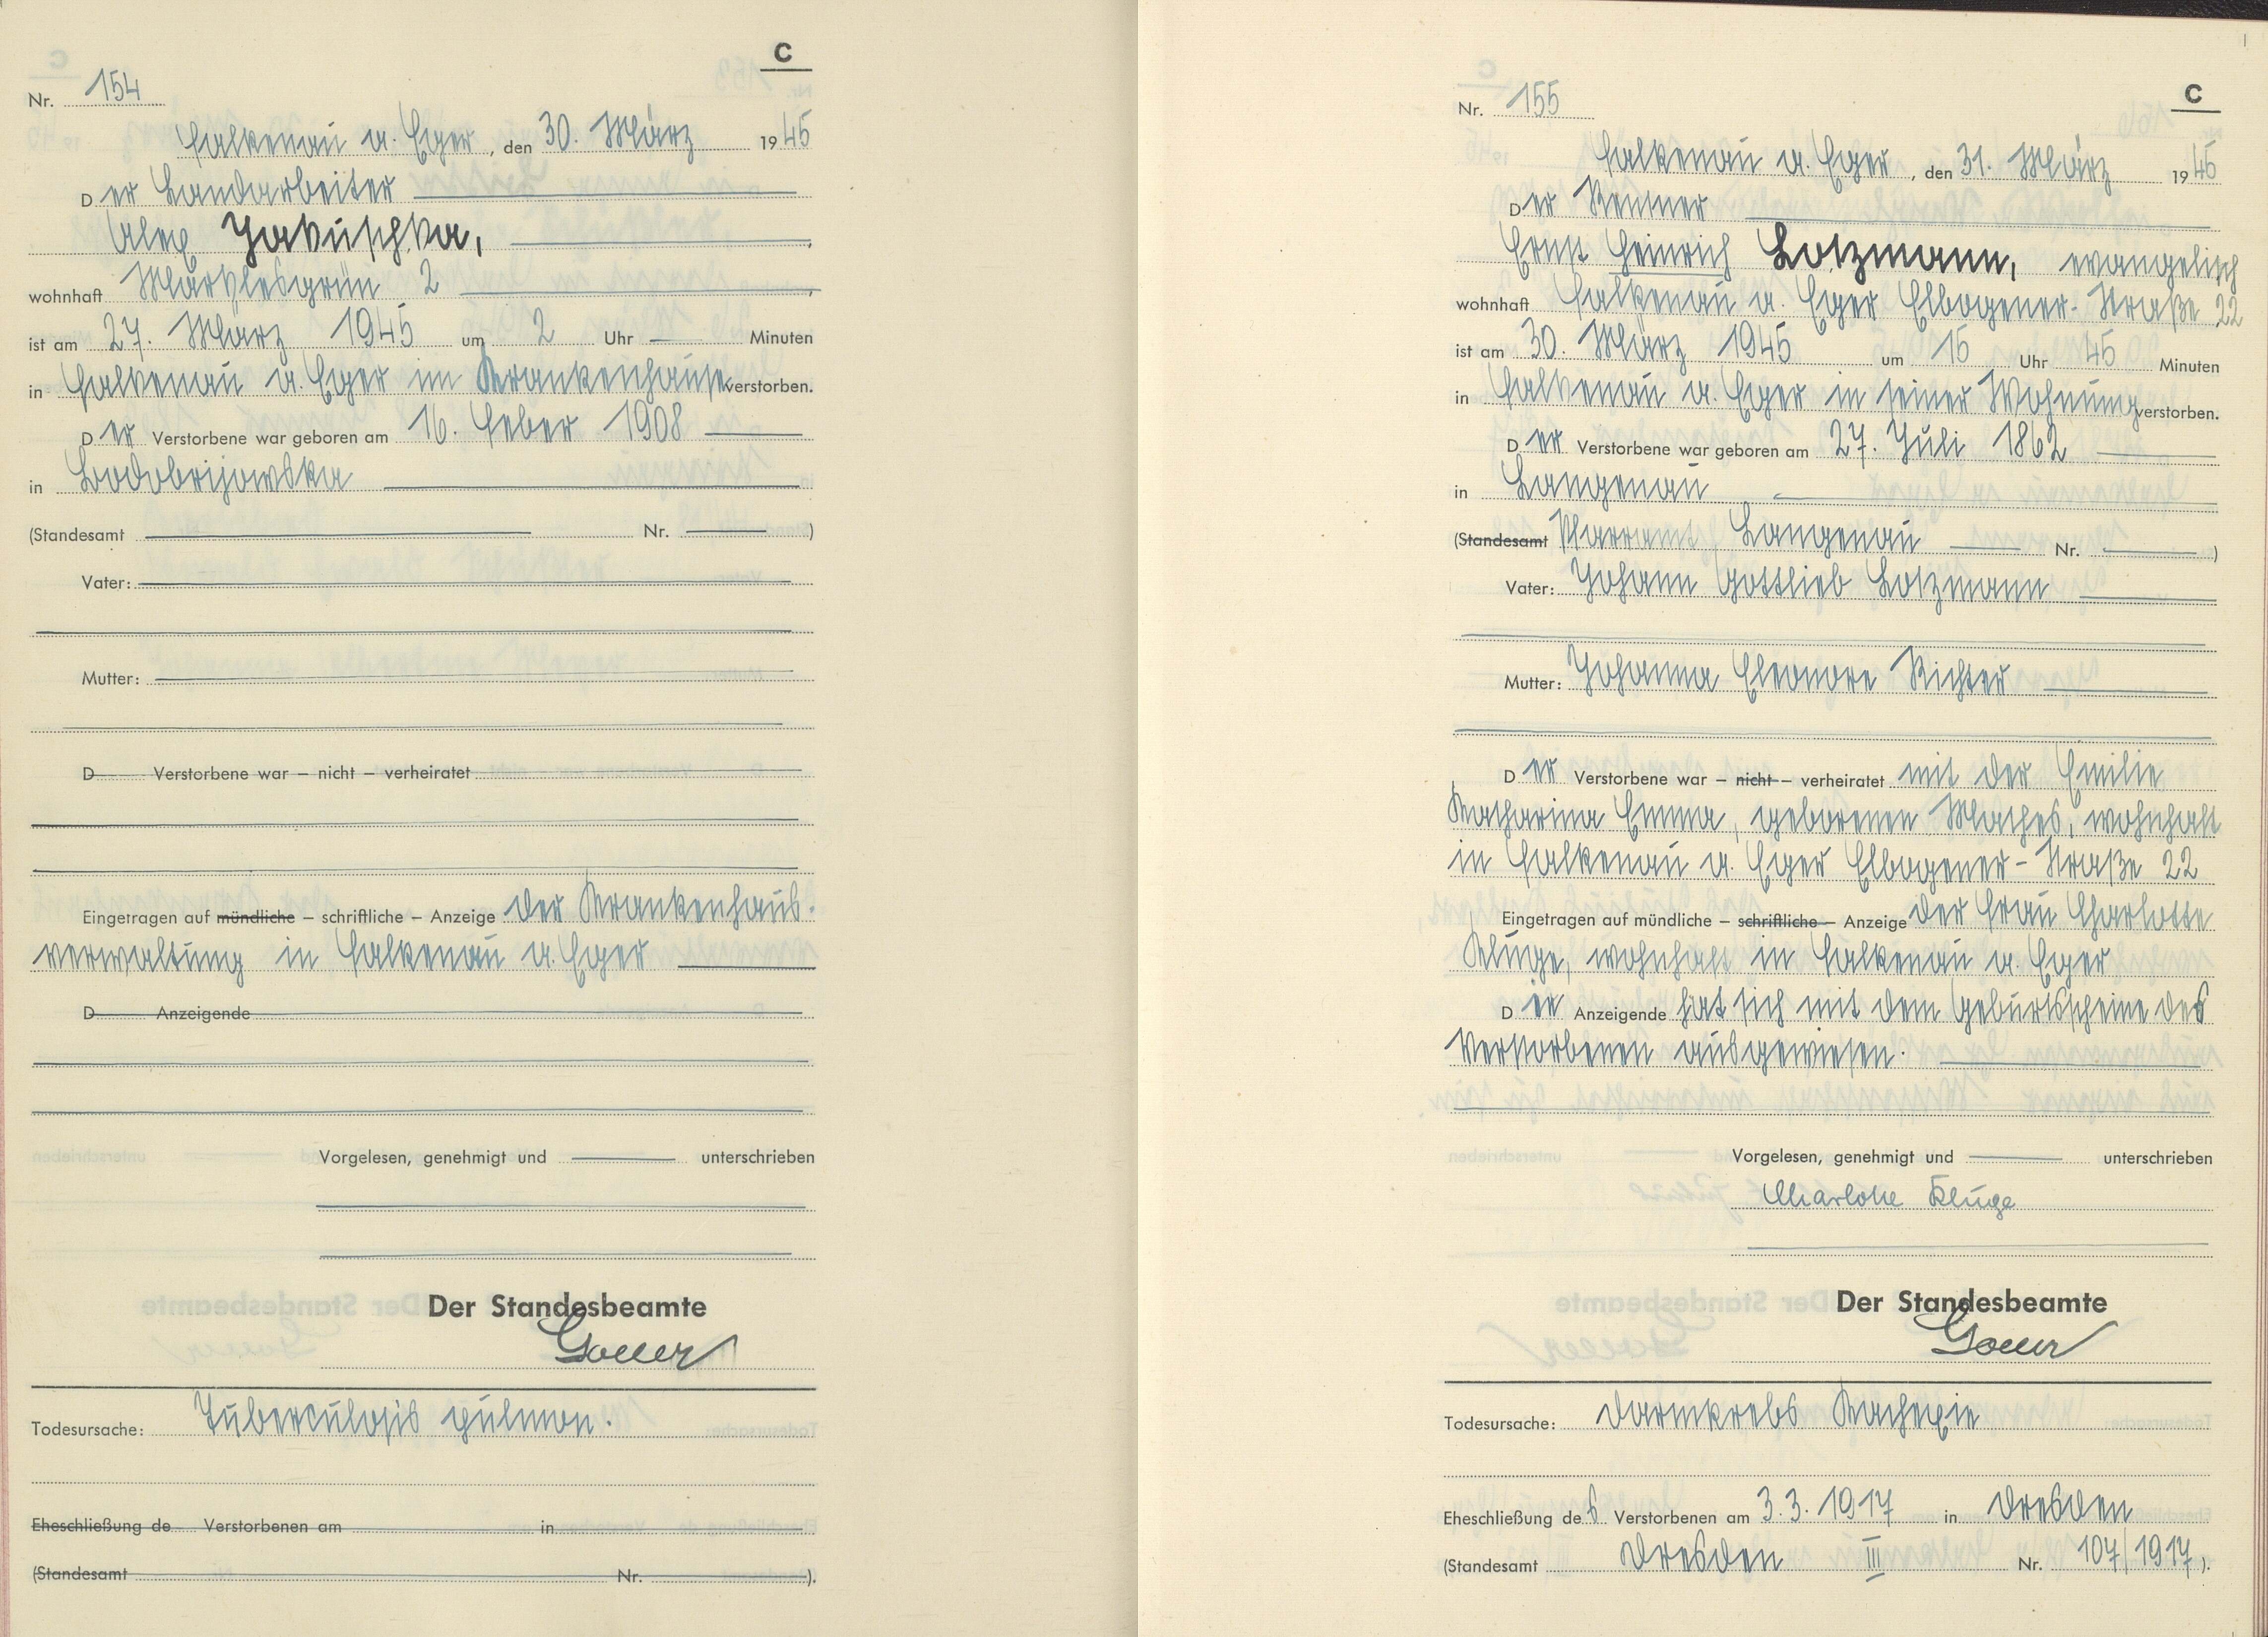 C
Nr. 154
Falkenau a. Eger, den 30. März 1945
Der Landarbeiter
Alex Jakuschka,
wohnhaft Märzlesgrün 2
ist am 27. März 1945 um 2 Uhr — Minuten
in Falkenau a. Eger im Krankenhause verstorben.
Der Verstorbene war geboren am 16. Feber 1908
in Bodobrijowska
(Standesamt Nr. )
Vater:
Mutter:
D Verstorbene war – nicht – verheiratet
Eingetragen auf mündliche – schriftliche – Anzeige der Krankenhaus-
verwaltung in Falkenau a. Eger
D Anzeigende
Vorgelesen, genehmigt und unterschrieben
Der Standesbeamte
Todesursache: Tuberculosis pulmon.
Eheschließung de Verstorbenen am in
(Standesamt Nr. ).
C
Nr. 155
Falkenau a. Eger, den 31. März 1945
Der Rentner
Ernst Heinrich Lotzmann, evangelisch
wohnhaft Falkenau a. Eger Elbogener-Straße 22
ist am 30. März 1945 um 15 Uhr 45 Minuten
in Falkenau a. Eger in seiner Wohnung verstorben.
Der Verstorbene war geboren am 27. Juli 1862
in Langenau
(Standesamt Pfarramt Langenau Nr. )
Vater: Johann Gottlieb Lotzmann
Mutter: Johanna Eleonore Richter
Der Verstorbene war – nicht – verheiratet mit der Emilie
Katharina Emma, geborenen Mathes, wohnhaft
in Falkenau a. Eger Elbogener-Straße 22
Eingetragen auf mündliche – schriftliche – Anzeige der Frau Charlotte
Kluge, wohnhaft in Falkenau a. Eger
Die Anzeigende hat sich mit dem Geburtsscheine des
Verstorbenen ausgewiesen.
Vorgelesen, genehmigt und unterschrieben
Charlotte Kluge
Der Standesbeamte
Todesursache: Darmkrebs Kachexie
Eheschließung des Verstorbenen am 3.3.1917 in Dresden
(Standesamt Dresden III Nr. 107/1917).